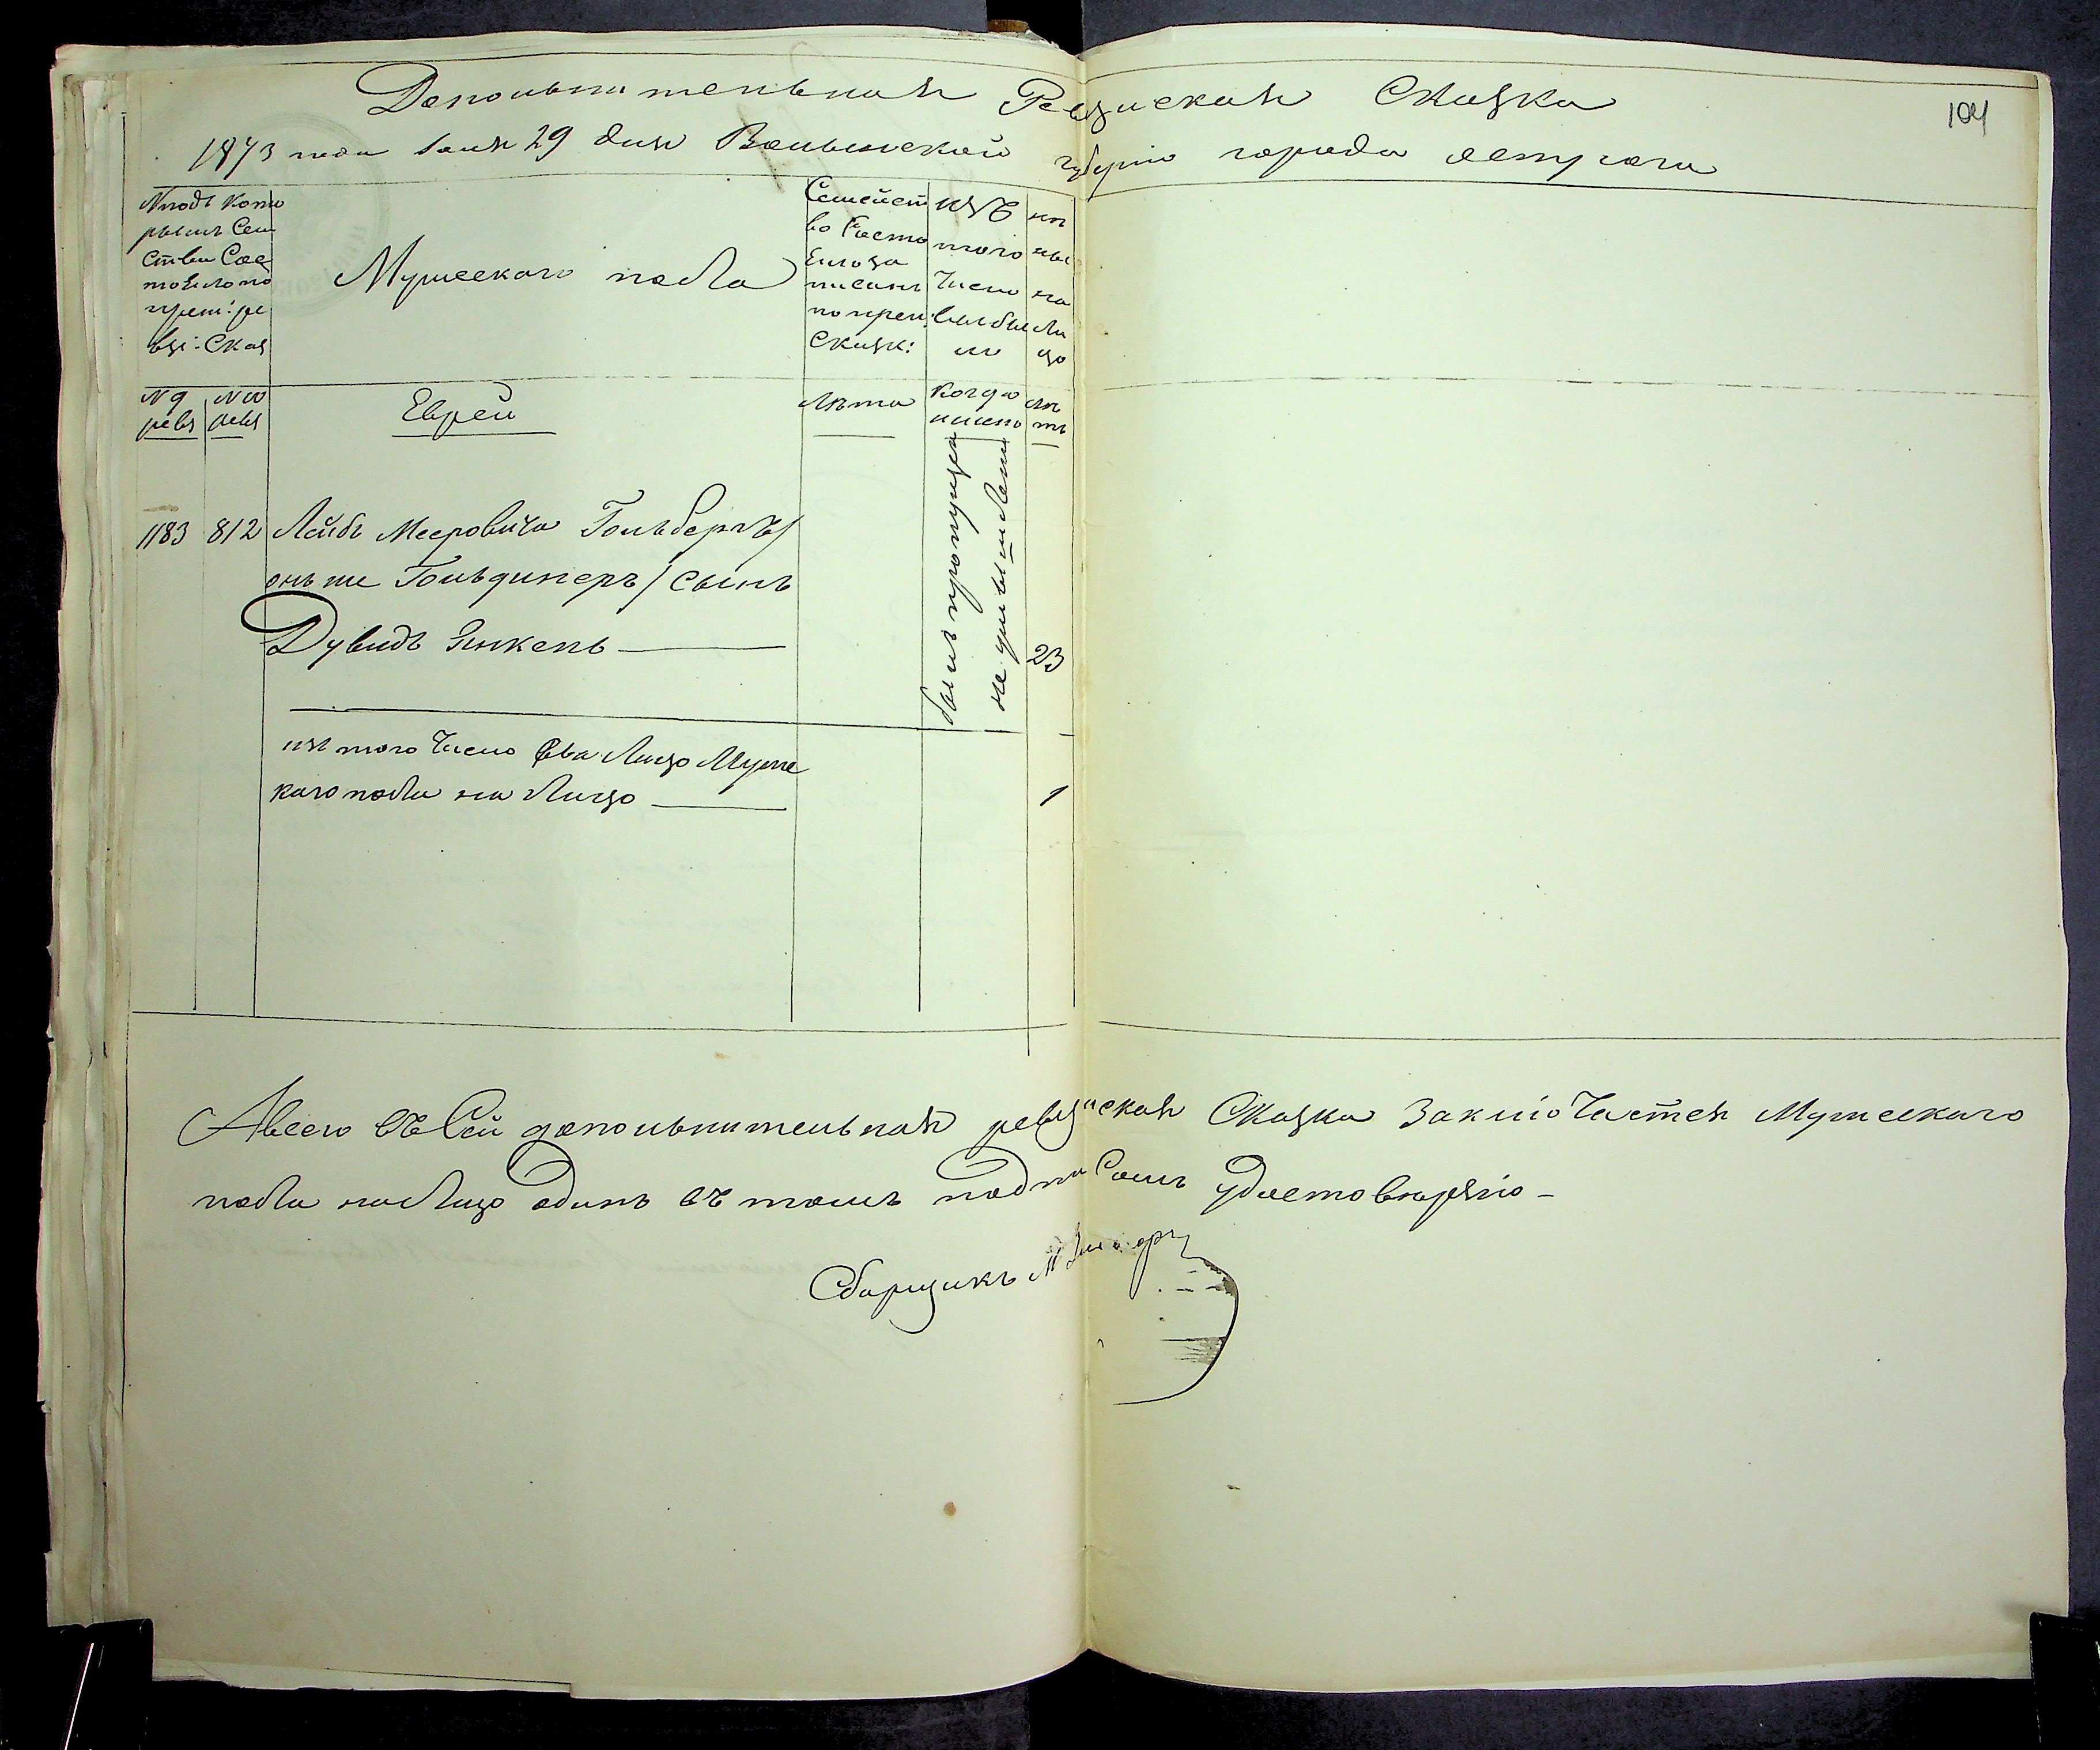 Допольнительная Ревзиская Сказка
104
1873 года мая 29 дня Волынской губернiи города острога
№ подъ Кото
рымъ Сем
ства Сос
тояло по
прет: ре
взi: Сказ
Мужескаго пола
Семейст
во Состо
яло за
писанъ
по прет.
Сказк:
изъ
того
Число
выбы
ло
ны
не
на
ли
цо
№ 9 ревз
№ 10 ревз
Еврей
лѣта
Когда
имено
лѣ
тъ
1183 812 Лейбъ Мееровича Гольбергъ/
онъ же Гольдинеръ/ Сынъ
Дувидъ Янкель 23
былъ пропущенъ
не умышлено
изъ того Число два Лицо Муже
каго пола на Лицо 1
А всего въ Сей допольнительная ревзиская Сказка Заключается Мужескаго
пола на Лицо одинъ въ томъ подписомъ удостовѣряю
Сборщикъ М